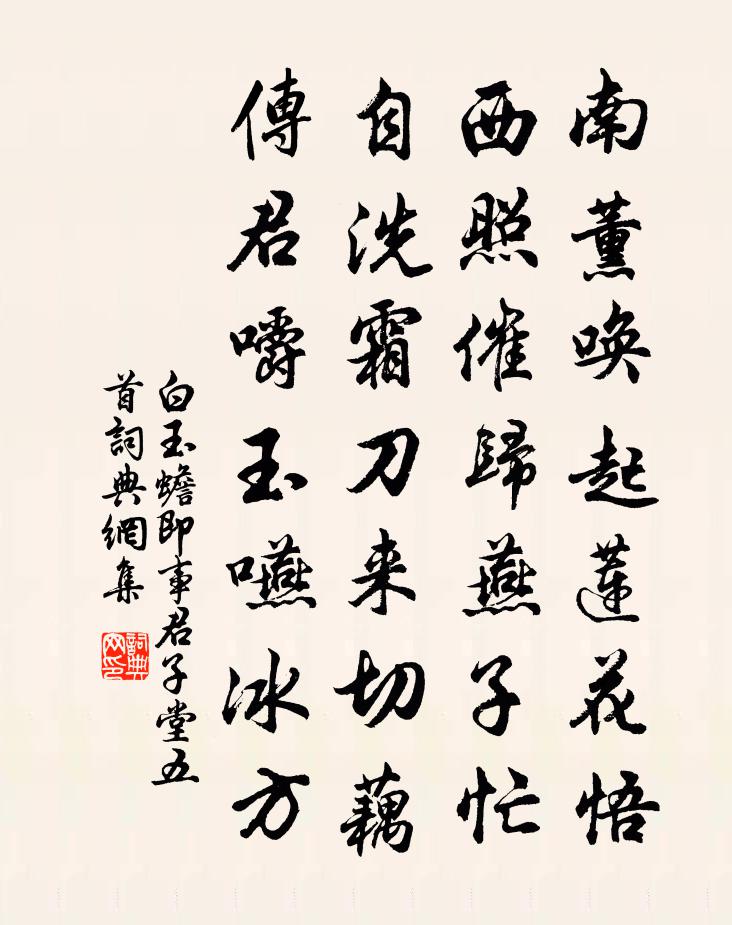 南薰唤起莲花悟
西照催歸燕子忙
自洗霜刀来切藕
傳君嚼玉嚥冰方
白玉蟾即事君子堂五
首詞典網集
詞典
网印